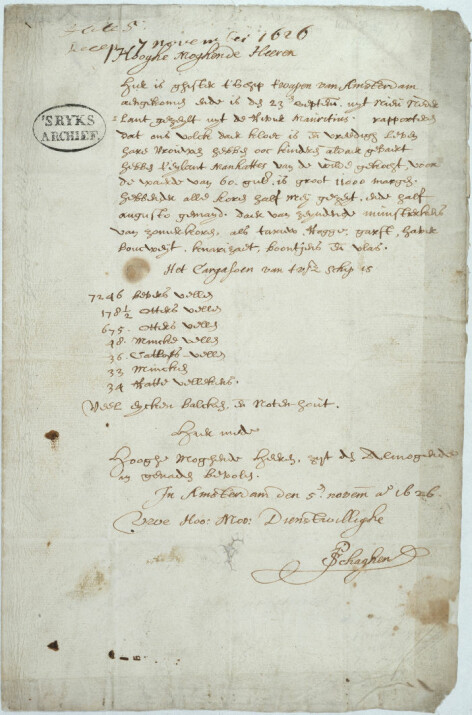 Recep. 7 novem 1626
Hooghe Moghende Heeren
Hier is ghister t'schip t'wapen van Amsterdam
aengekomen ende is den 23en septem. uyt Nieu Nederlant
gezeylt uyt de rivier Mauritius. rapporteert
dat ons volck daer kloec is en vredigh leven
hare vrouwen hebben ooc kinderen aldaer gebaert
hebben t'eylant Manhattes van de wilde gekocht voor
de waerde van 60 guld. is groot 11000 morgen.
hebbende alle koren half mey gezeyt, ende half
augusto gemayd. daer van zeyndende munsterkens
van zomerkoren, als tarruw, Rogge, garst, haver
boucweyt, knarizaet, boontjens en vlas.
Het Cargasoen van tvsz schip is
7246 Bevers vellen
178½ Otters vellen
675. Otters vellen
48. Mincke vellen
36. Catloes vellen
33 Mincken
34 Ratte vellekens.
Veel eycken balcken, en Noten hout.
Hier mede
Hooghe Moghende Heeren, zyt den Almogende
in genaden bevolen.
In Amsterdam den 5en novem. ao 1626.
Uwe Hoo: Moo: Dienstwillighe
P Schaghen
'S RYKS
ARCHIEF